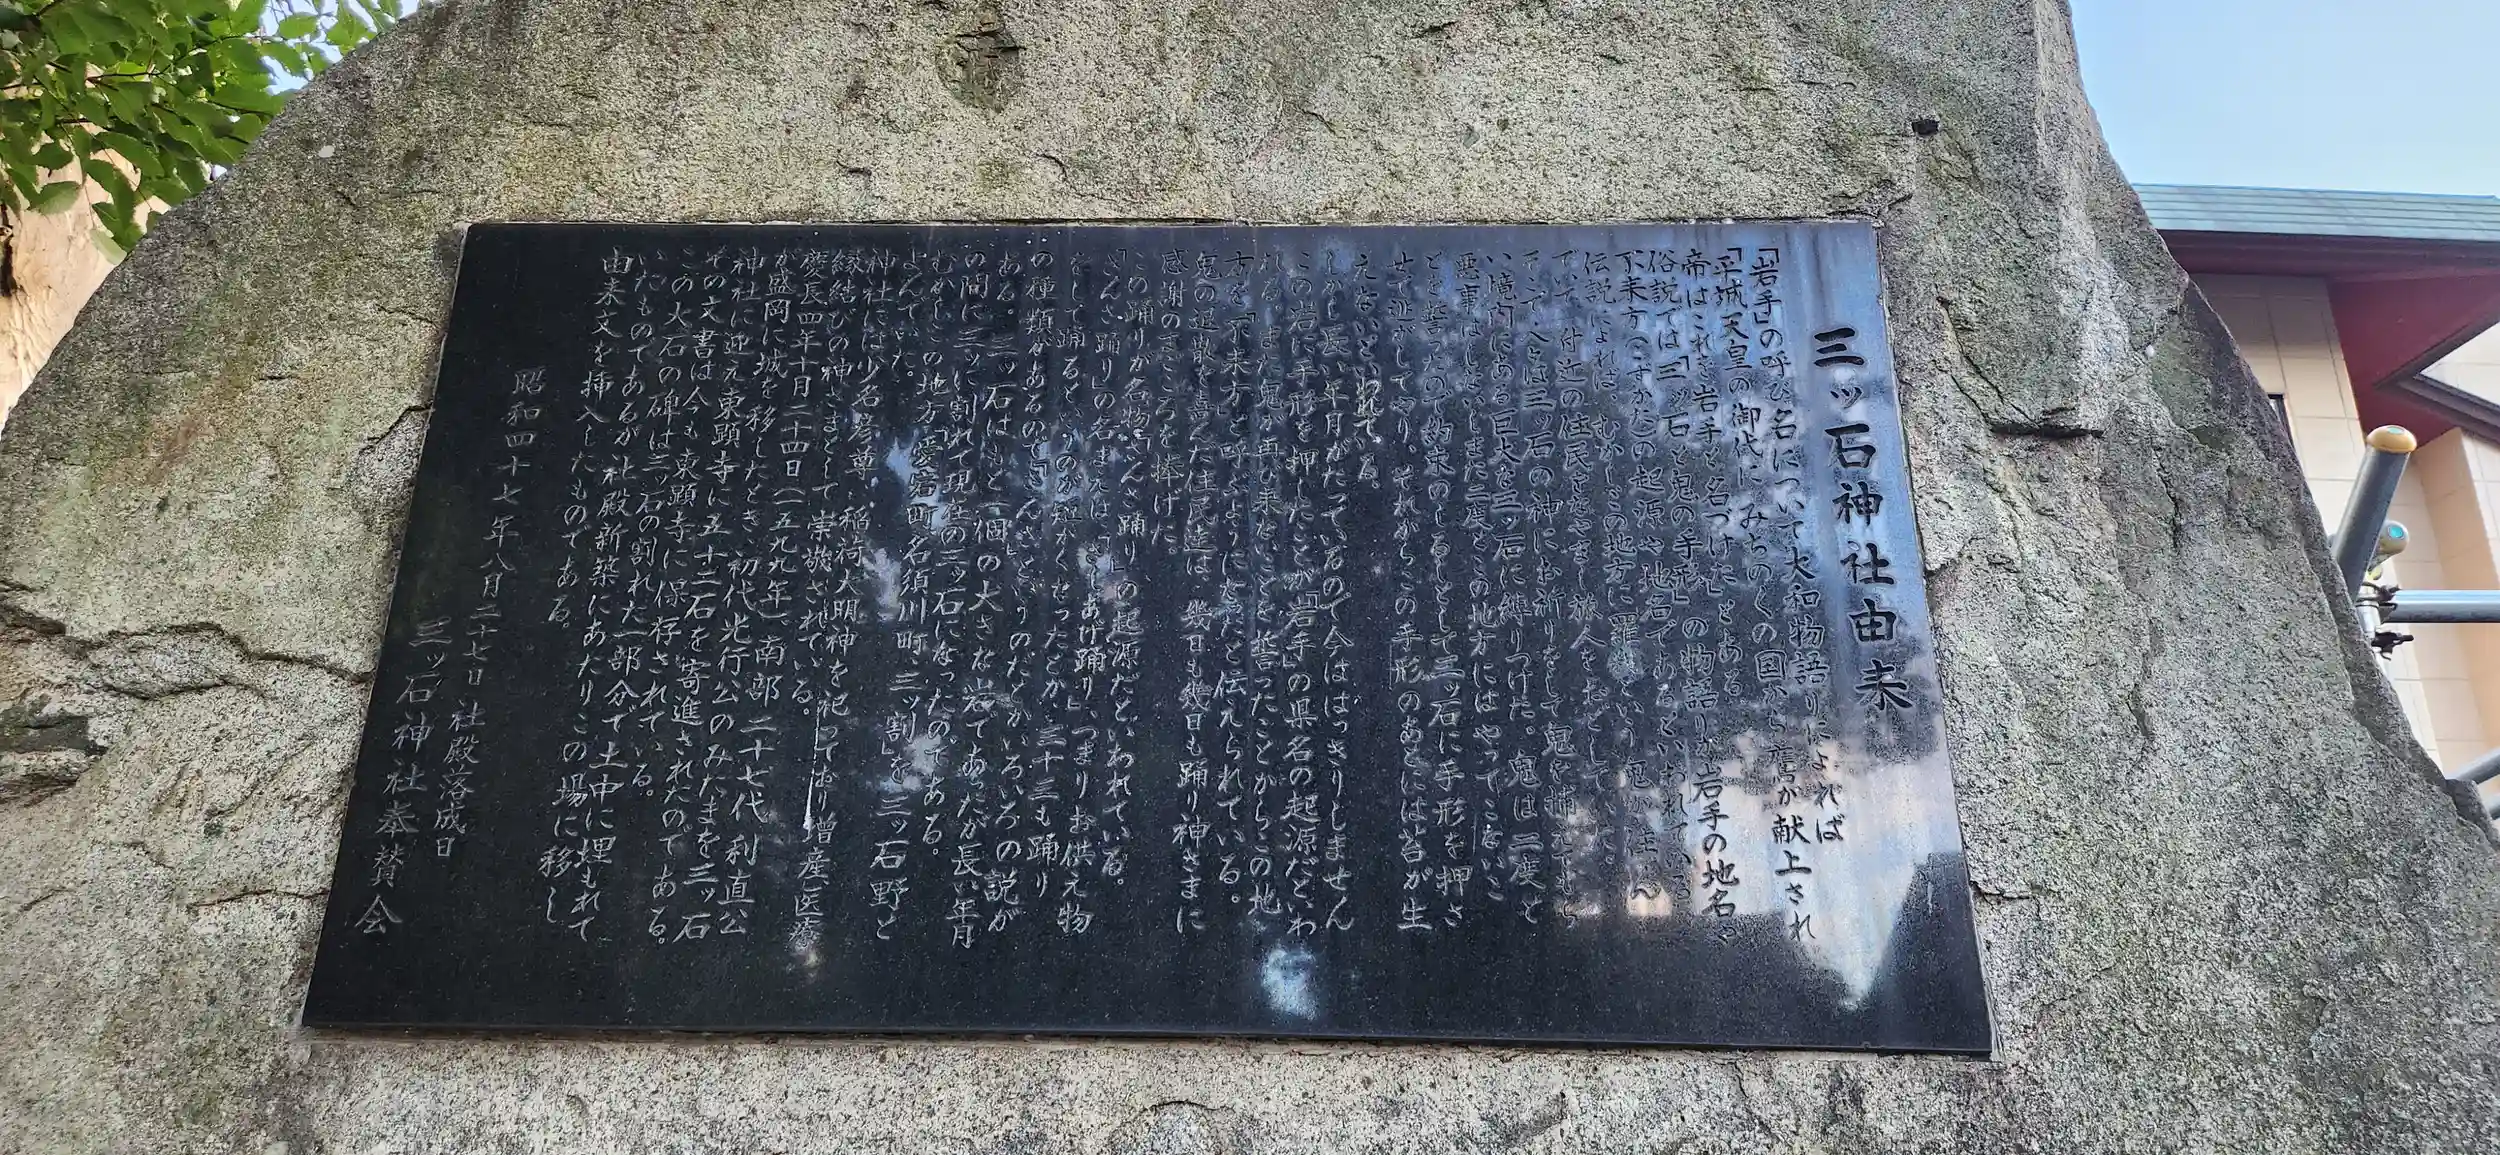 三ッ石神社由来
「岩手」の呼び名について大和物語りによれば
「平城天皇の御代に、みちのくの国から鷹が献上され
帝はこれを岩手と名づけに」とある
俗説では「三ッ石と鬼の手形」の物語りが岩手の地名や
不来方(こずかた)の起源や地名であるといわれている
伝説によれば、むかしこの地方に「羅刹」という鬼が住ん
でいて、付近の住民をなやまし旅人をおどしていた。
そこで人々は三ッ石の神にお祈りをして鬼を捕えてもら
い、境内にある巨大な三ッ石に縛りつけた。鬼は二度と
悪事はしないしまた二度とこの地方にはやってこないこ
とを誓ったので約束のしるしとして三ッ石に手形を押さ
せて逃がしてやり、それからこの手形のあとには苔が生
えないといわれている。
しかし長い年月がたっているので今ははっきりしません
この岩に手形を押したことが「岩手」の県名の起源だといわ
れる。また鬼が再び来ないことを誓ったことからこの地
方を「不来方」と呼ぶようになったと伝えられている。
鬼の退散を喜んだ住民達は、幾日も幾日も踊り神さまに
感謝のまごころを捧げた。
この踊りが名物「さんさ踊り」の起源だといわれている。
「さんさ踊り」の名まえは「さしあげ踊り」、つまりお供え物
をして踊るというのが短かくせったとか、三十三も踊り
の種類があるので「さんさ」というのだとか、いろいろの説が
ある。三ッ石はもと一個の大きな岩であったが長い年月
の間に三ッに割れて現在の三ッ石になったのである。
むかしこの地方「愛宕町、名須川町、三ッ割」を三ッ石野と
よんでいた。
神社には少名彦尊、稲荷大明神を祀っており増産医療
縁結びの神さまとして崇敬されている。
慶長四年十月二十四日(一五九九年)南部二十七代利直公
が盛岡に城を移したとき、初代光行公のみたまを三ッ石
神社に迎え東顕寺に五十二石を寄進されたのである。
その文書は今も東顕寺に保存されている。
この大石の碑は三ッ石の割れた一部分で土中に埋もれて
いたものであるが社殿新築にあたりこの場に移し
由来文を挿入したものである。
昭和四十七年八月二十七日 社殿落成日
三ッ石神社奉賛会